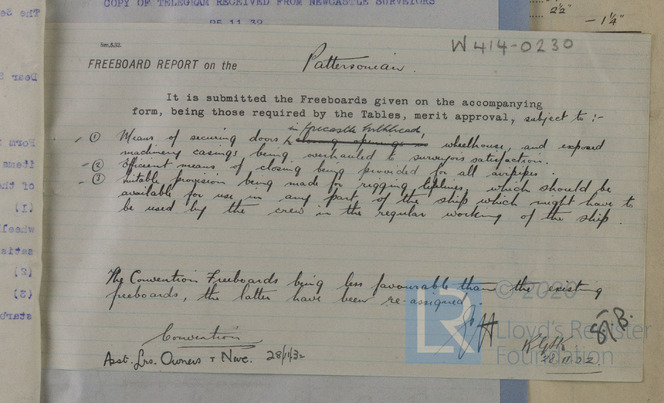 COPY OF TELEGRAM RECEIVED FROM NEWCASTLE SURVEYORS
25.11.32
2½"
- 1¼"
W414-0230
FREEBOARD REPORT on the Pattersonian.
It is submitted the Freeboards given on the accompanying
form, being those required by the Tables, merit approval, subject to :-
in forecastle bulkheads,
(1) Means of securing doors wheelhouse, and exposed
machinery casings being overhauled to surveyors satisfaction.
(2) Efficient means of closing being provided for all airpipes.
(3) Suitable provision being made for rigging lifelines which should be
available for use in any part of the ship which might have to
be used by the crew in the regular working of the ship.
The Convention Freeboards being less favourable than the existing
freeboards, the latter have been re-assigned.
Convention
Asst. Lrs. Owners & Nwc. 28/11/32
© 2020
Lloyd's Register
Foundation
LR